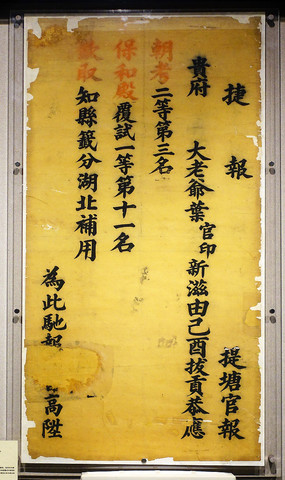 捷報
貴府大老爺葉官印新滋由己酉拔貢恭應
提塘官報
朝考二等第三名
保和殿覆試一等第十一名
欽取知縣籤分湖北補用
為此馳
高陞